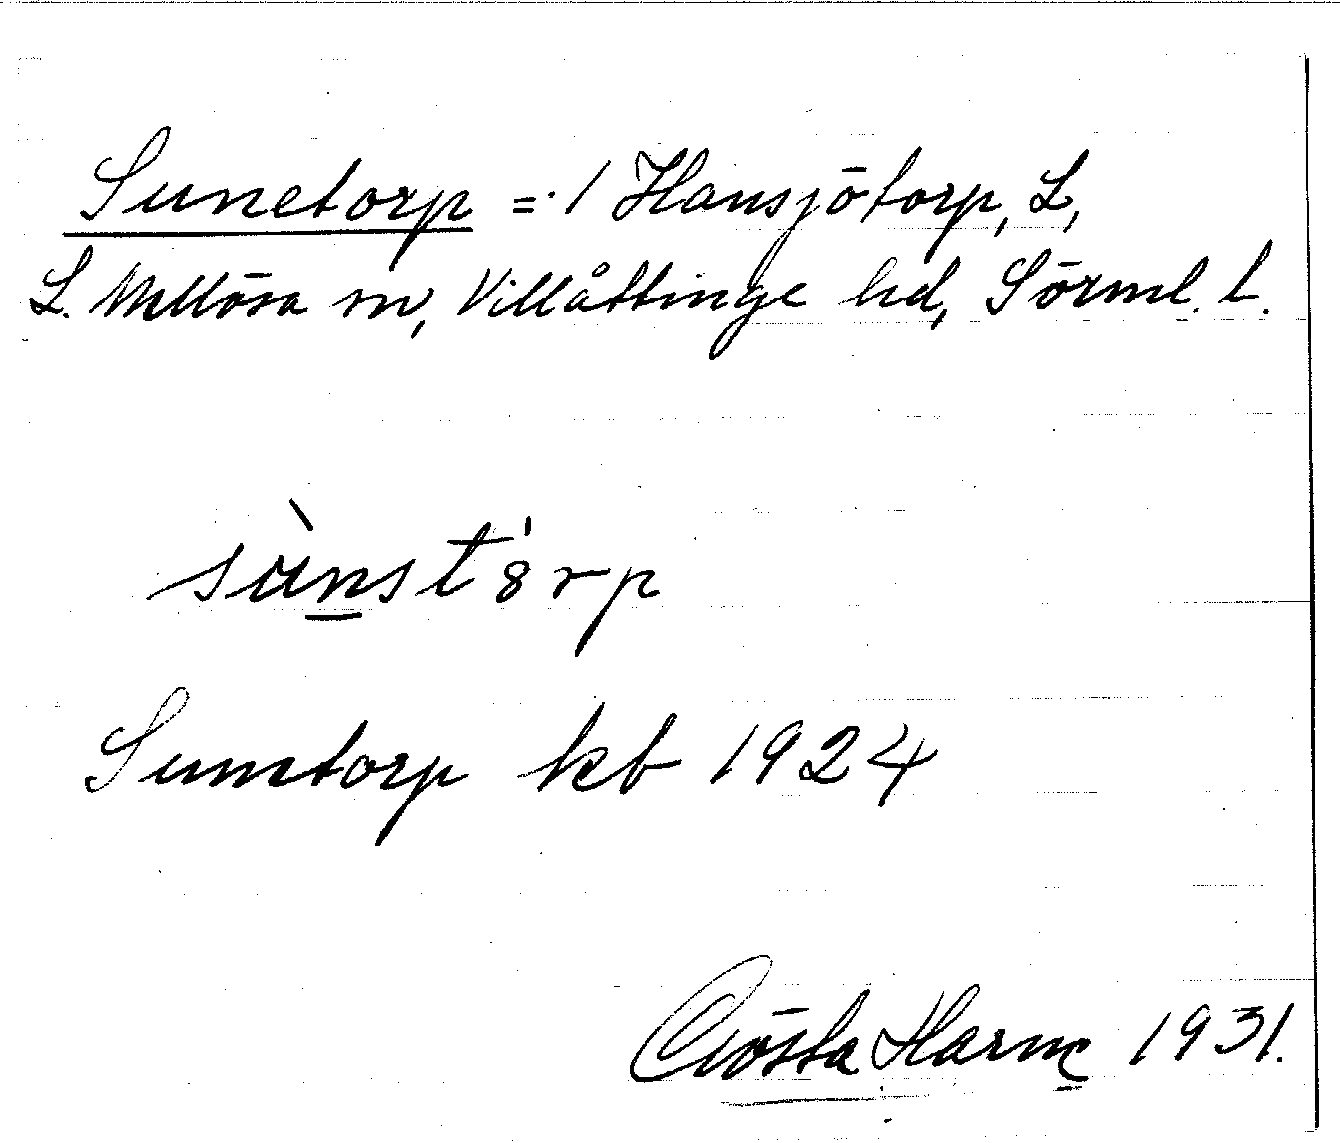 Sunetorp = 1 Hansjötorp, L,
L. Mellösa sn, Villåttinge hd, Sörml. l.
sùnst'8rp
Sunetorp kb 1924
Gösta Harne 1931.